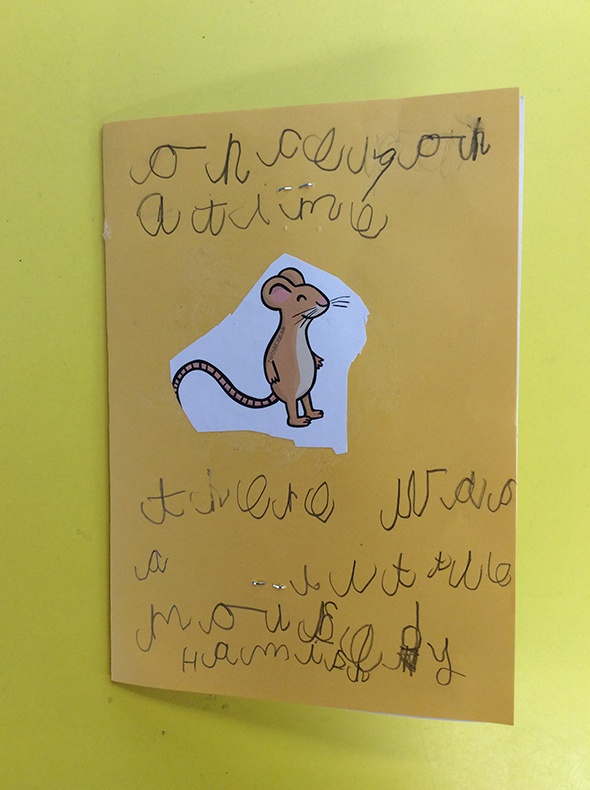 onceupon
a time
there was
a little
mouse
Hamish